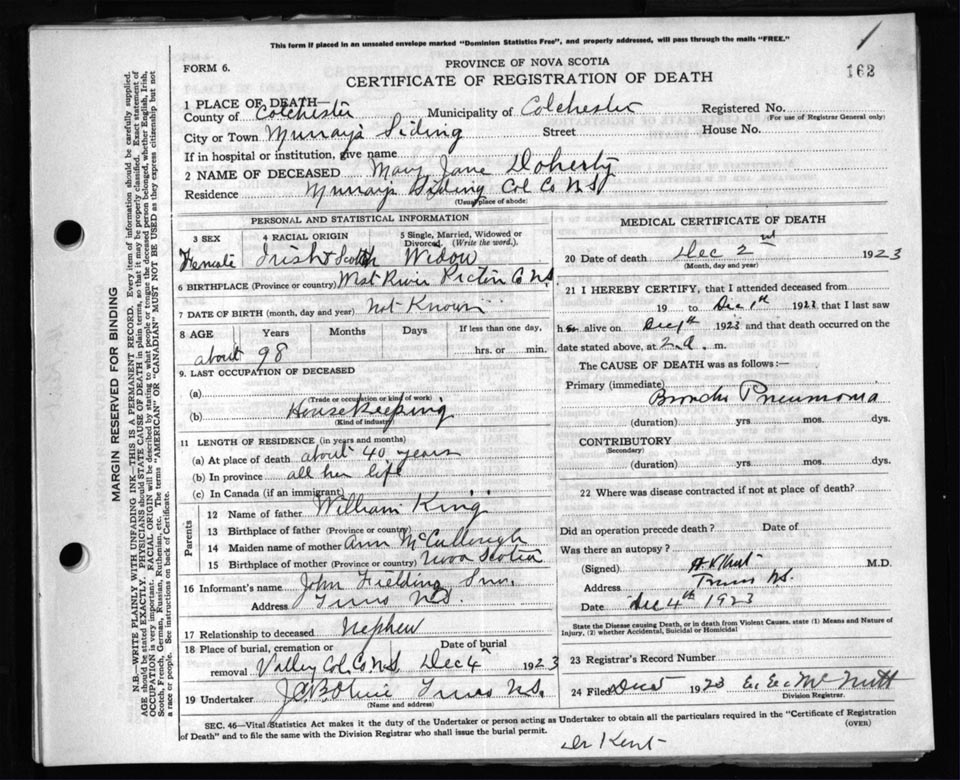 This form if placed in an unsealed envelope marked "Dominion Statistics Free", and properly addressed, will pass through the mails "FREE."
1
FORM 6.
PROVINCE OF NOVA SCOTIA
CERTIFICATE OF REGISTRATION OF DEATH
162
1 PLACE OF DEATH—
County of Colchester Municipality of Colchester Registered No.
(For use of Registrar General only)
City or Town Murrays Siding Street House No.
If in hospital or institution, give name
2 NAME OF DECEASED Mary Jane Doherty
Residence Murrays Siding Col Co NS
(Usual place of abode)
MARGIN RESERVED FOR BINDING
N.B.—WRITE PLAINLY WITH UNFADING INK—THIS IS A PERMANENT RECORD. Every item of information should be carefully supplied.
AGE should be stated EXACTLY. PHYSICIANS should STATE CAUSE OF DEATH in plain terms, so that it may be properly classified. Exact statement of
OCCUPATION is very important. RACIAL ORIGIN will be described by stating to what people or tongue the deceased person belonged, whether English, Irish,
Scotch, French, German, Russian, Ruthenian, etc. The terms "AMERICAN" OR "CANADIAN" MUST NOT BE USED as they express citizenship but not
a race or people. See instructions on back of Certificate.
PERSONAL AND STATISTICAL INFORMATION
3 SEX
Female
4 RACIAL ORIGIN
Irish & Scotch
5 Single, Married, Widowed or
Divorced. (Write the word.)
Widow
6 BIRTHPLACE (Province or country) West River Pictou Co N.S.
7 DATE OF BIRTH (month, day and year) Not Known
8 AGE Years Months Days If less than one day,
about 98 hrs. or min.
9. LAST OCCUPATION OF DECEASED
(a)
(Trade or occupation or kind of work)
(b) House Keeping
(Kind of industry)
11 LENGTH OF RESIDENCE (in years and months)
(a) At place of death about 40 years
(b) In province all her life
(c) In Canada (if an immigrant)
Parents
12 Name of father William King
13 Birthplace of father (Province or country)
14 Maiden name of mother Ann McCullough
15 Birthplace of mother (Province or country) Nova Scotia
16 Informant's name John Fielding Snr.
Address Truro N.S.
17 Relationship to deceased Nephew
18 Place of burial, cremation or Date of burial
removal Valley Col. Co. N.S Dec 4 1923
19 Undertaker Truro N.S.
(Name and address)
MEDICAL CERTIFICATE OF DEATH
20 Date of death Dec 2nd 1923
(Month, day and year)
21 I HEREBY CERTIFY, that I attended deceased from
19 to Dec 1th 1923 that I last saw
h alive on Dec 1th 1923 and that death occurred on
date stated above, at 2 a. m.
The CAUSE OF DEATH was as follows:—
Primary (immediate) Broncho Pneumonia
(duration) yrs. mos. dys.
CONTRIBUTORY
(Secondary)
(duration) yrs. mos. dys.
22 Where was disease contracted if not at place of death?
Did an operation precede death? Date of
Was there an autopsy?
(Signed) Kent M.D.
Address Truro N.S.
Date Dec 4th 1923
State the Disease causing Death, or in death from Violent Causes, state (1) Means and Nature of
Injury, (2) whether Accidental, Suicidal or Homicidal
23 Registrar's Record Number
24 Filed Dec 5 1923 McNutt
Division Registrar.
SEC. 46—Vital Statistics Act makes it the duty of the Undertaker or person acting as Undertaker to obtain all the particulars required in the "Certificate of Registration
of Death" and to file the same with the Division Registrar who shall issue the burial permit. (OVER)
Dr Kent